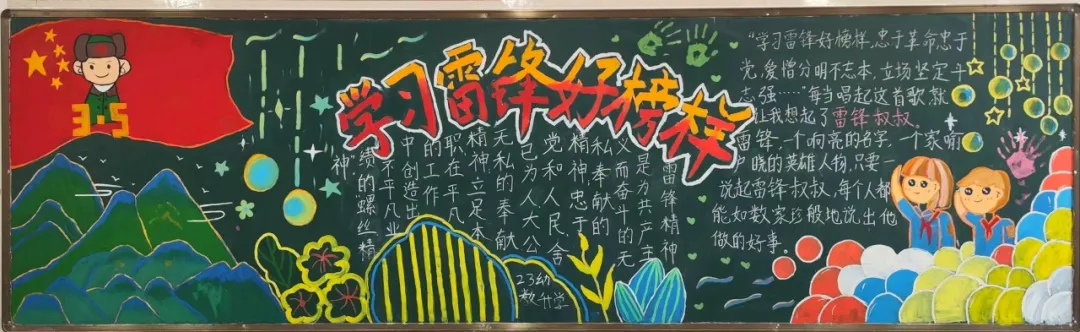 3.5
学习雷锋好榜样
雷锋精神
是为共产主
义而奋斗的无
私奉献的
精神,忠于
党和人民,舍
己为人大公
无私的奉献
精神,立足本
职,在平凡
的工作
中创造出
不平凡业
绩的“螺丝精
神”
“学习雷锋好榜样,忠于革命忠于
党,爱憎分明不忘本,立场坚定斗
志强……”每当唱起这首歌,就
让我想起了雷锋叔叔。
雷锋,一个响亮的名字,一个家喻
户晓的英雄人物,只要一
说起雷锋叔叔,每个人都
能如数家珍般地说出他
做的好事。
23幼
教升学